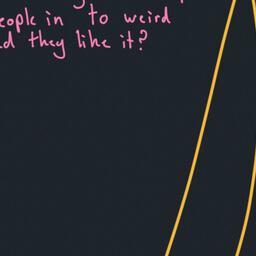 people in to weird
they like it?